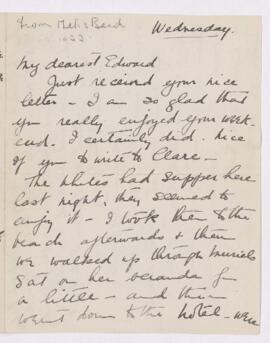 from Metis Beach
Wednesday.
1933
My dearest Edward
Just received your nice
letter - I am so glad that
you really enjoyed your week-
end. I certainly did. Nice
of you to write to Clare -
The Whites had supper here
last night, they seemed to
enjoy it - I took them to the
beach afterwards & then
we walked up through Muriel's
sat on her veranda for
a little - and then
went down to the hotel - were